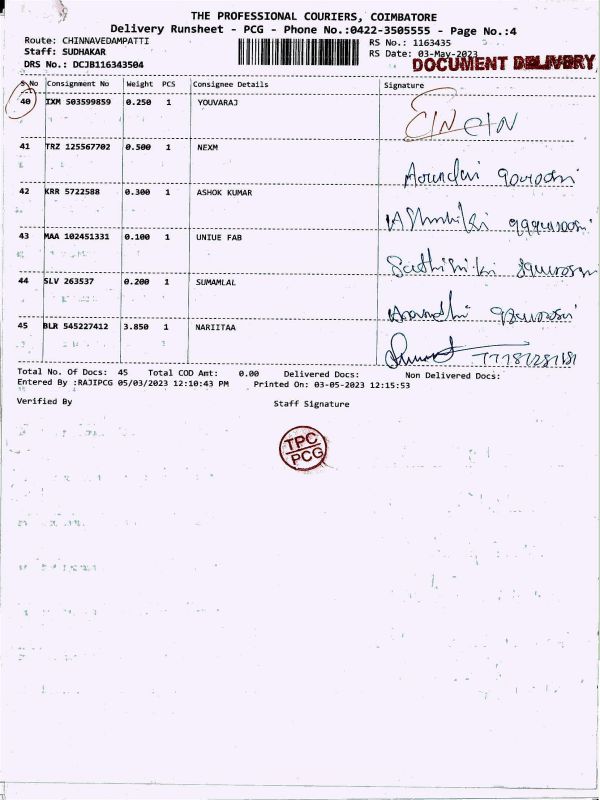 THE PROFESSIONAL COURIERS, COIMBATORE
Delivery Runsheet - PCG - Phone No.:0422-3505555 - Page No.:4
Route: CHINNAVEDAMPATTI RS No.: 1163435
Staff: SUDHAKAR RS Date: 03-May-2023
DRS No.: DCJB116343504 DOCUMENT DELIVERY
S.No Consignment No Weight PCS Consignee Details Signature
40 IXM 503599859 0.250 1 YOUVARAJ
41 TRZ 125567702 0.500 1 NEXM
42 KRR 5722588 0.300 1 ASHOK KUMAR
43 MAA 102451331 0.100 1 UNIUE FAB
44 SLV 263537 0.200 1 SUMAMLAL
45 BLR 545227412 3.850 1 NARIITAA
Total No. Of Docs: 45 Total COD Amt: 0.00 Delivered Docs: Non Delivered Docs:
Entered By :RAJIPCG 05/03/2023 12:10:43 PM Printed On: 03-05-2023 12:15:53
Verified By Staff Signature
TPC
PCG